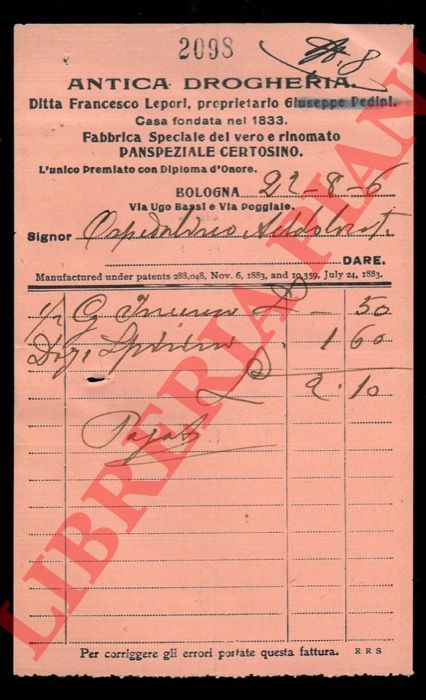 2098
N. 8
ANTICA DROGHERIA.
Ditta Francesco Lepori, proprietario Giuseppe Pedini.
Casa fondata nel 1833.
Fabbrica Speciale del vero e rinomato
PANSPEZIALE CERTOSINO.
L'unico Premiato con Diploma d'Onore.
BOLOGNA 22-8-6
Via Ugo Bassi e Via Poggiale.
Signor
DARE.
Manufactured under patents 288,048, Nov. 6, 1883, and 10,359, July 24, 1883.
1/2 G - 50
1 60
L 2.10
Pagato
Per corriggere gli errori portate questa fattura. R R S
LIBRERIA PIANI